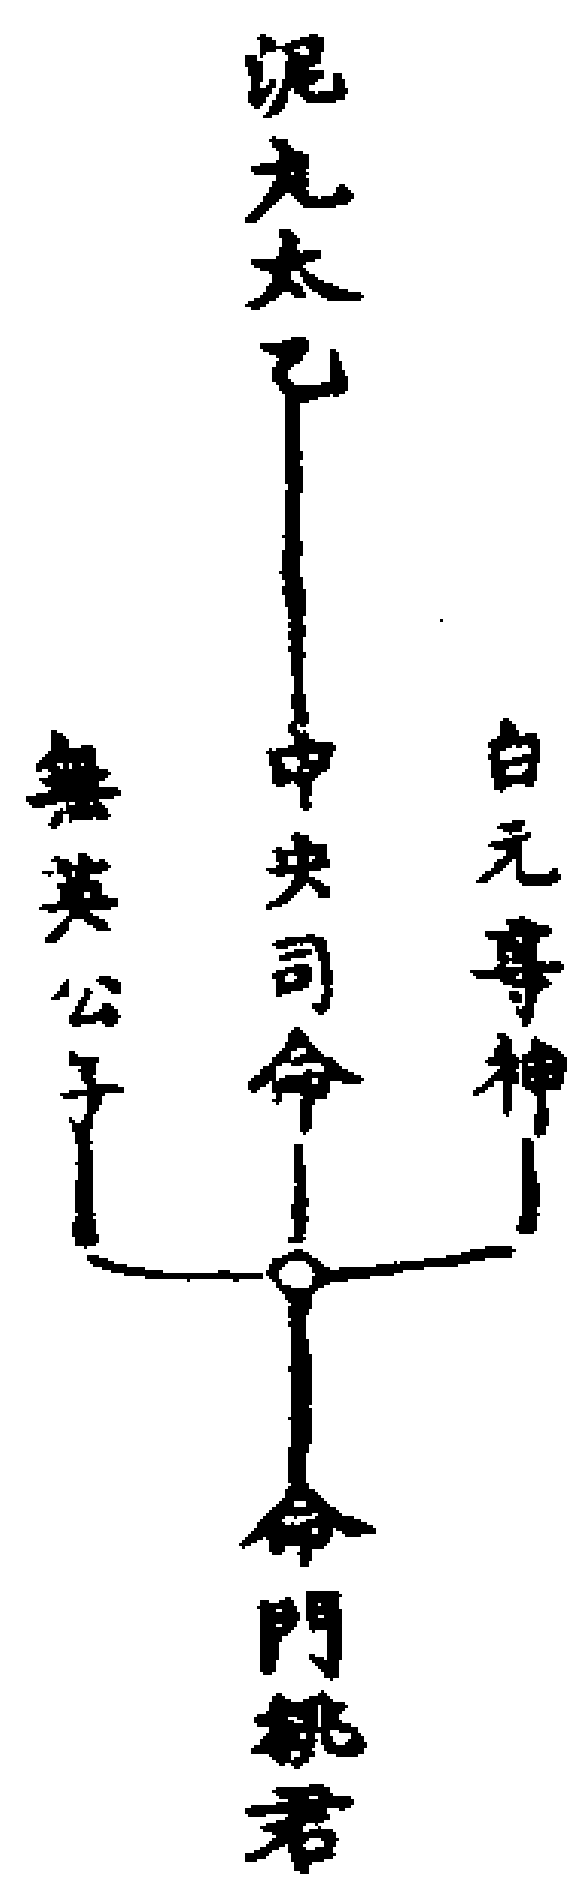 泥丸太乙
白元尊神
中央司命
無英公子
命門桃君